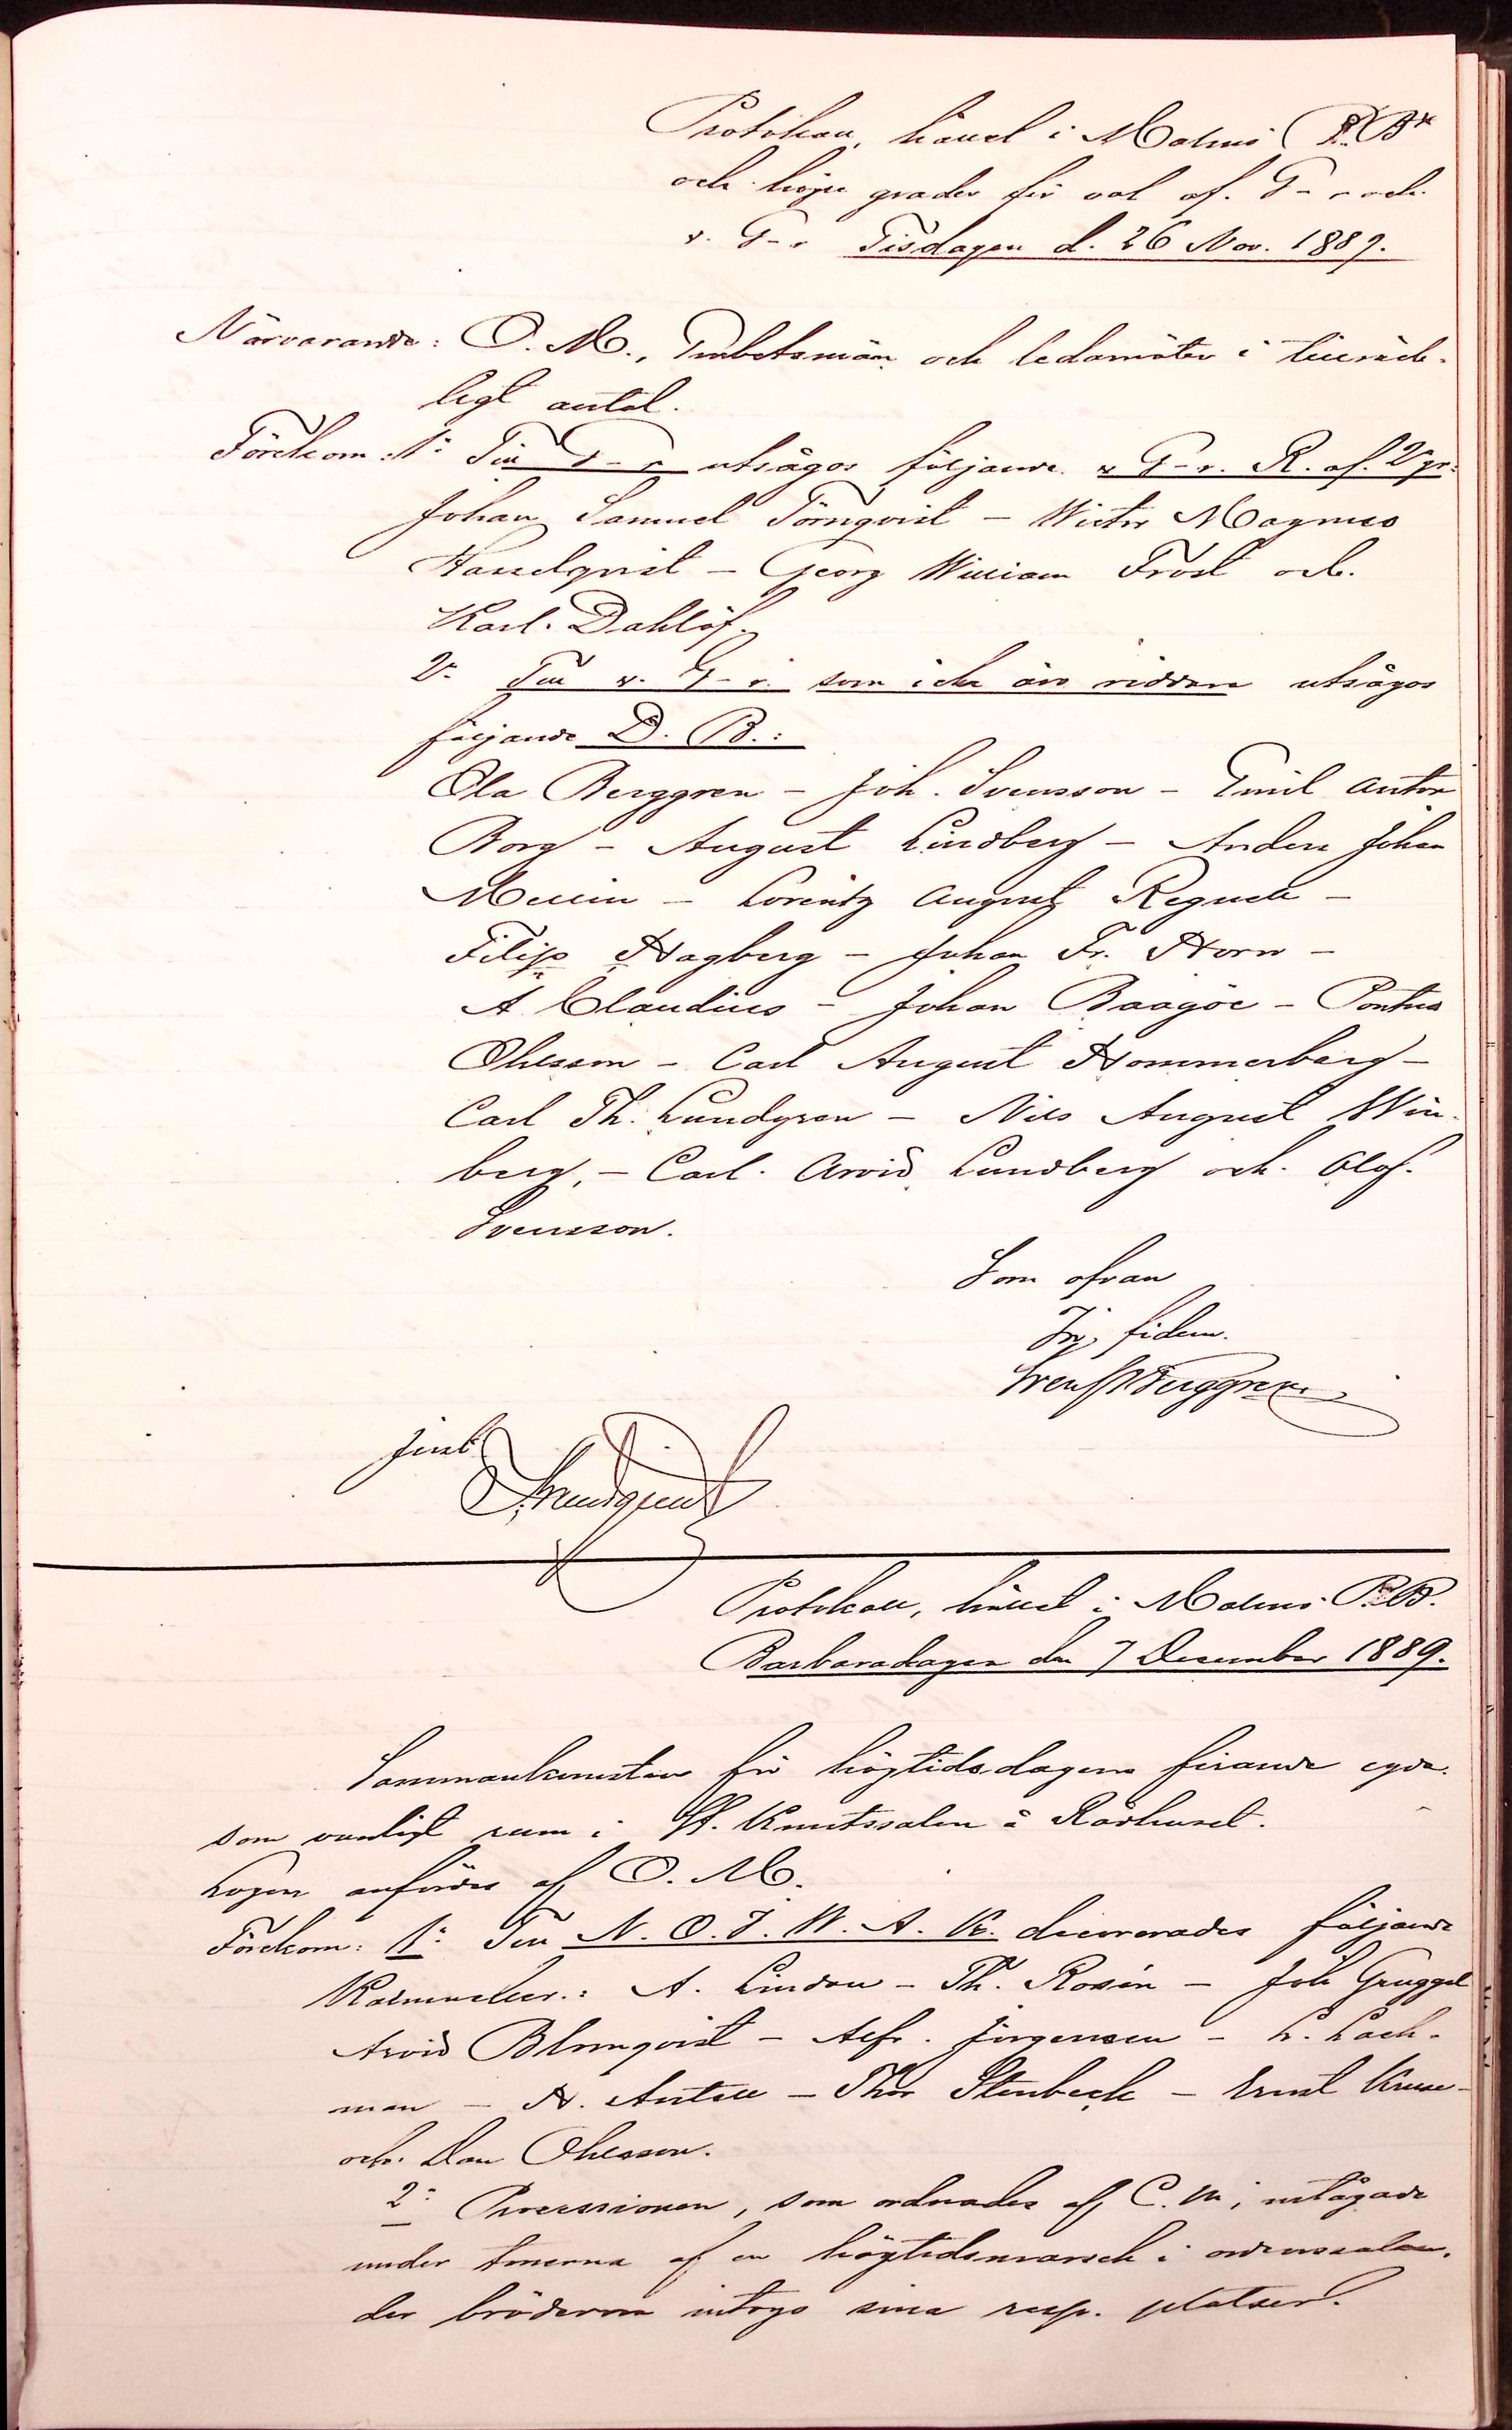 Protokoll, hållet i Malmö P. B*
och högre grader för val af G–r och
v. G–r Tisdagen d. 26 Nov. 1889.
Närvarande: O. M., Embetsmän och ledamöter i tillräck-
ligt antal.
Förekom: 1º Till G–r utsågos följande v G–r. R. af. 2 gr:
Johan Samuel Törnqvist – Victor Magnus
Hasselqvist – Georg William Frost och
Karl Dahlöf.
2º Till v. G–r. som icke äro riddare utsågos
följande D. B.:
Ola Berggren – Joh. Svensson – Emil Anton
Borg – August Lindberg – Anders Johan
Mellin – Lorentz August Regnell –
Filip Hagberg – Johan Fr. Horn –
A Claudius – Johan Baagöe – Pontus
Ohlsson – Carl August Hommerberg –
Carl Th. Lundgren – Nils August Win-
berg, – Carl Arvid Lundberg och Olof
Svensson.
Som ofvan
In fidem.
Berggren
Just.
Protokoll, hållet i Malmö P. B.
Barbaradagen den 7 December 1889.
Sammankomsten för högtidsdagens firande egde
som vanligt rum i St. Knutssalen å Rådhuset.
Logen anfördes af O. M.
Förekom: 1º Till N. O. J. W. A. K. decorerades följande
A. Lindau – Th. Rosén – Joh Gruggel
Arvid Blomqvist – Alfr. Jörgensen – L. Lach-
man – H. Antell – Thor Stenbeck – Ernst Kruse –
och Dan Ohlsson.
2º Processionen, som ordnades af C. M, intågade
under tonerna af en högtidsmarsch i ordenssalen,
der bröderna intogo sina resp. platser.